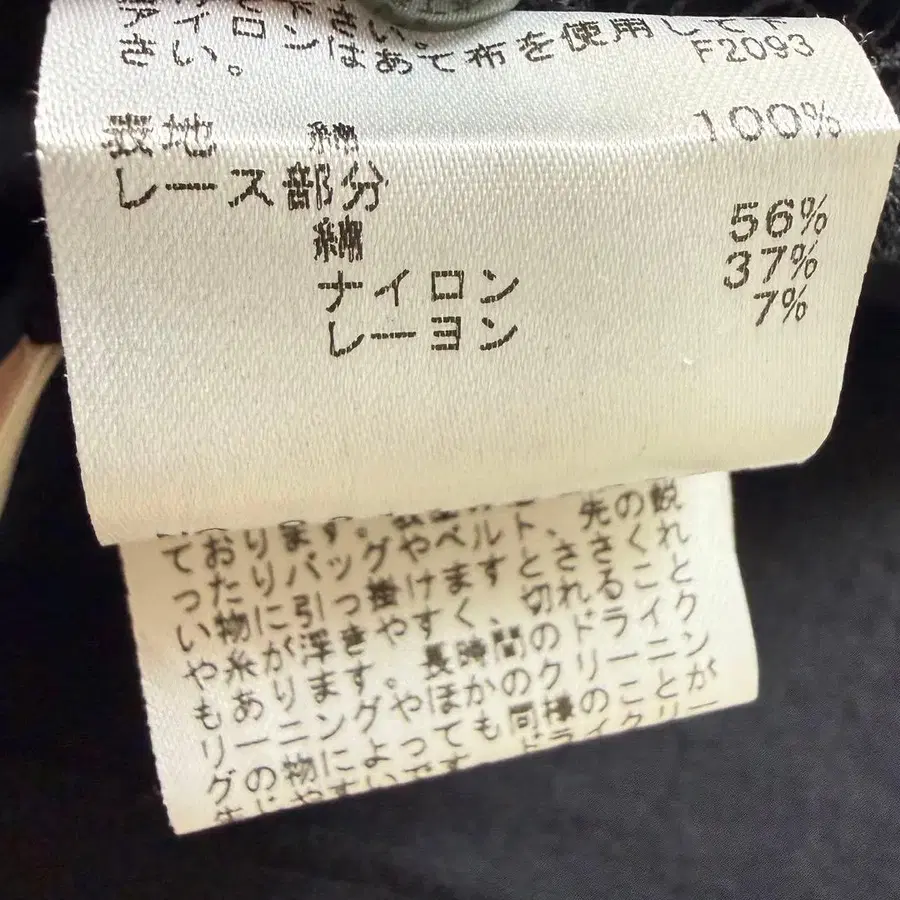 さい。
イロンはあて布を使用して下
さい。
F2093
敷地 綿 100%
レース部分
綿 56%
ナイロン 37%
レーヨン 7%
ており ます。
ったりバッグやベルト、先の鋭
い物に引っ掛けますと、さくれ
や糸が浮きやすく、切れること
もあります。長時間のドライク
リーニングやほかのクリーニン
グの物によっても同様のことが
生じやすいです。ドライクリー